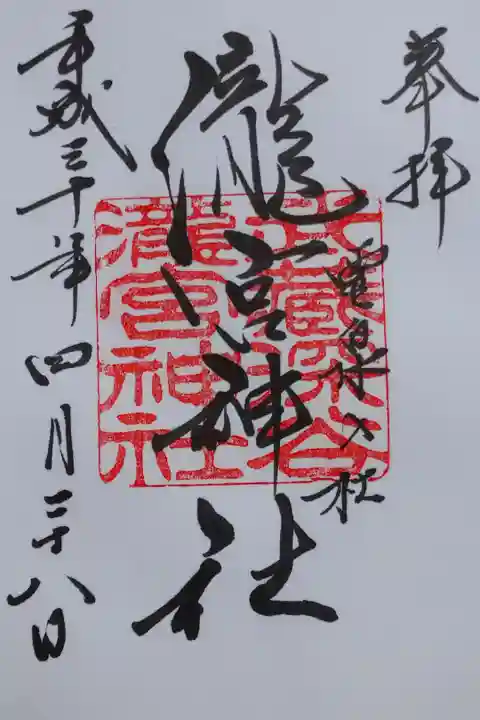 奉拝
霊泉 社
瀧宮神社
武蔵深谷
瀧宮神社
平成三十年四月二十八日